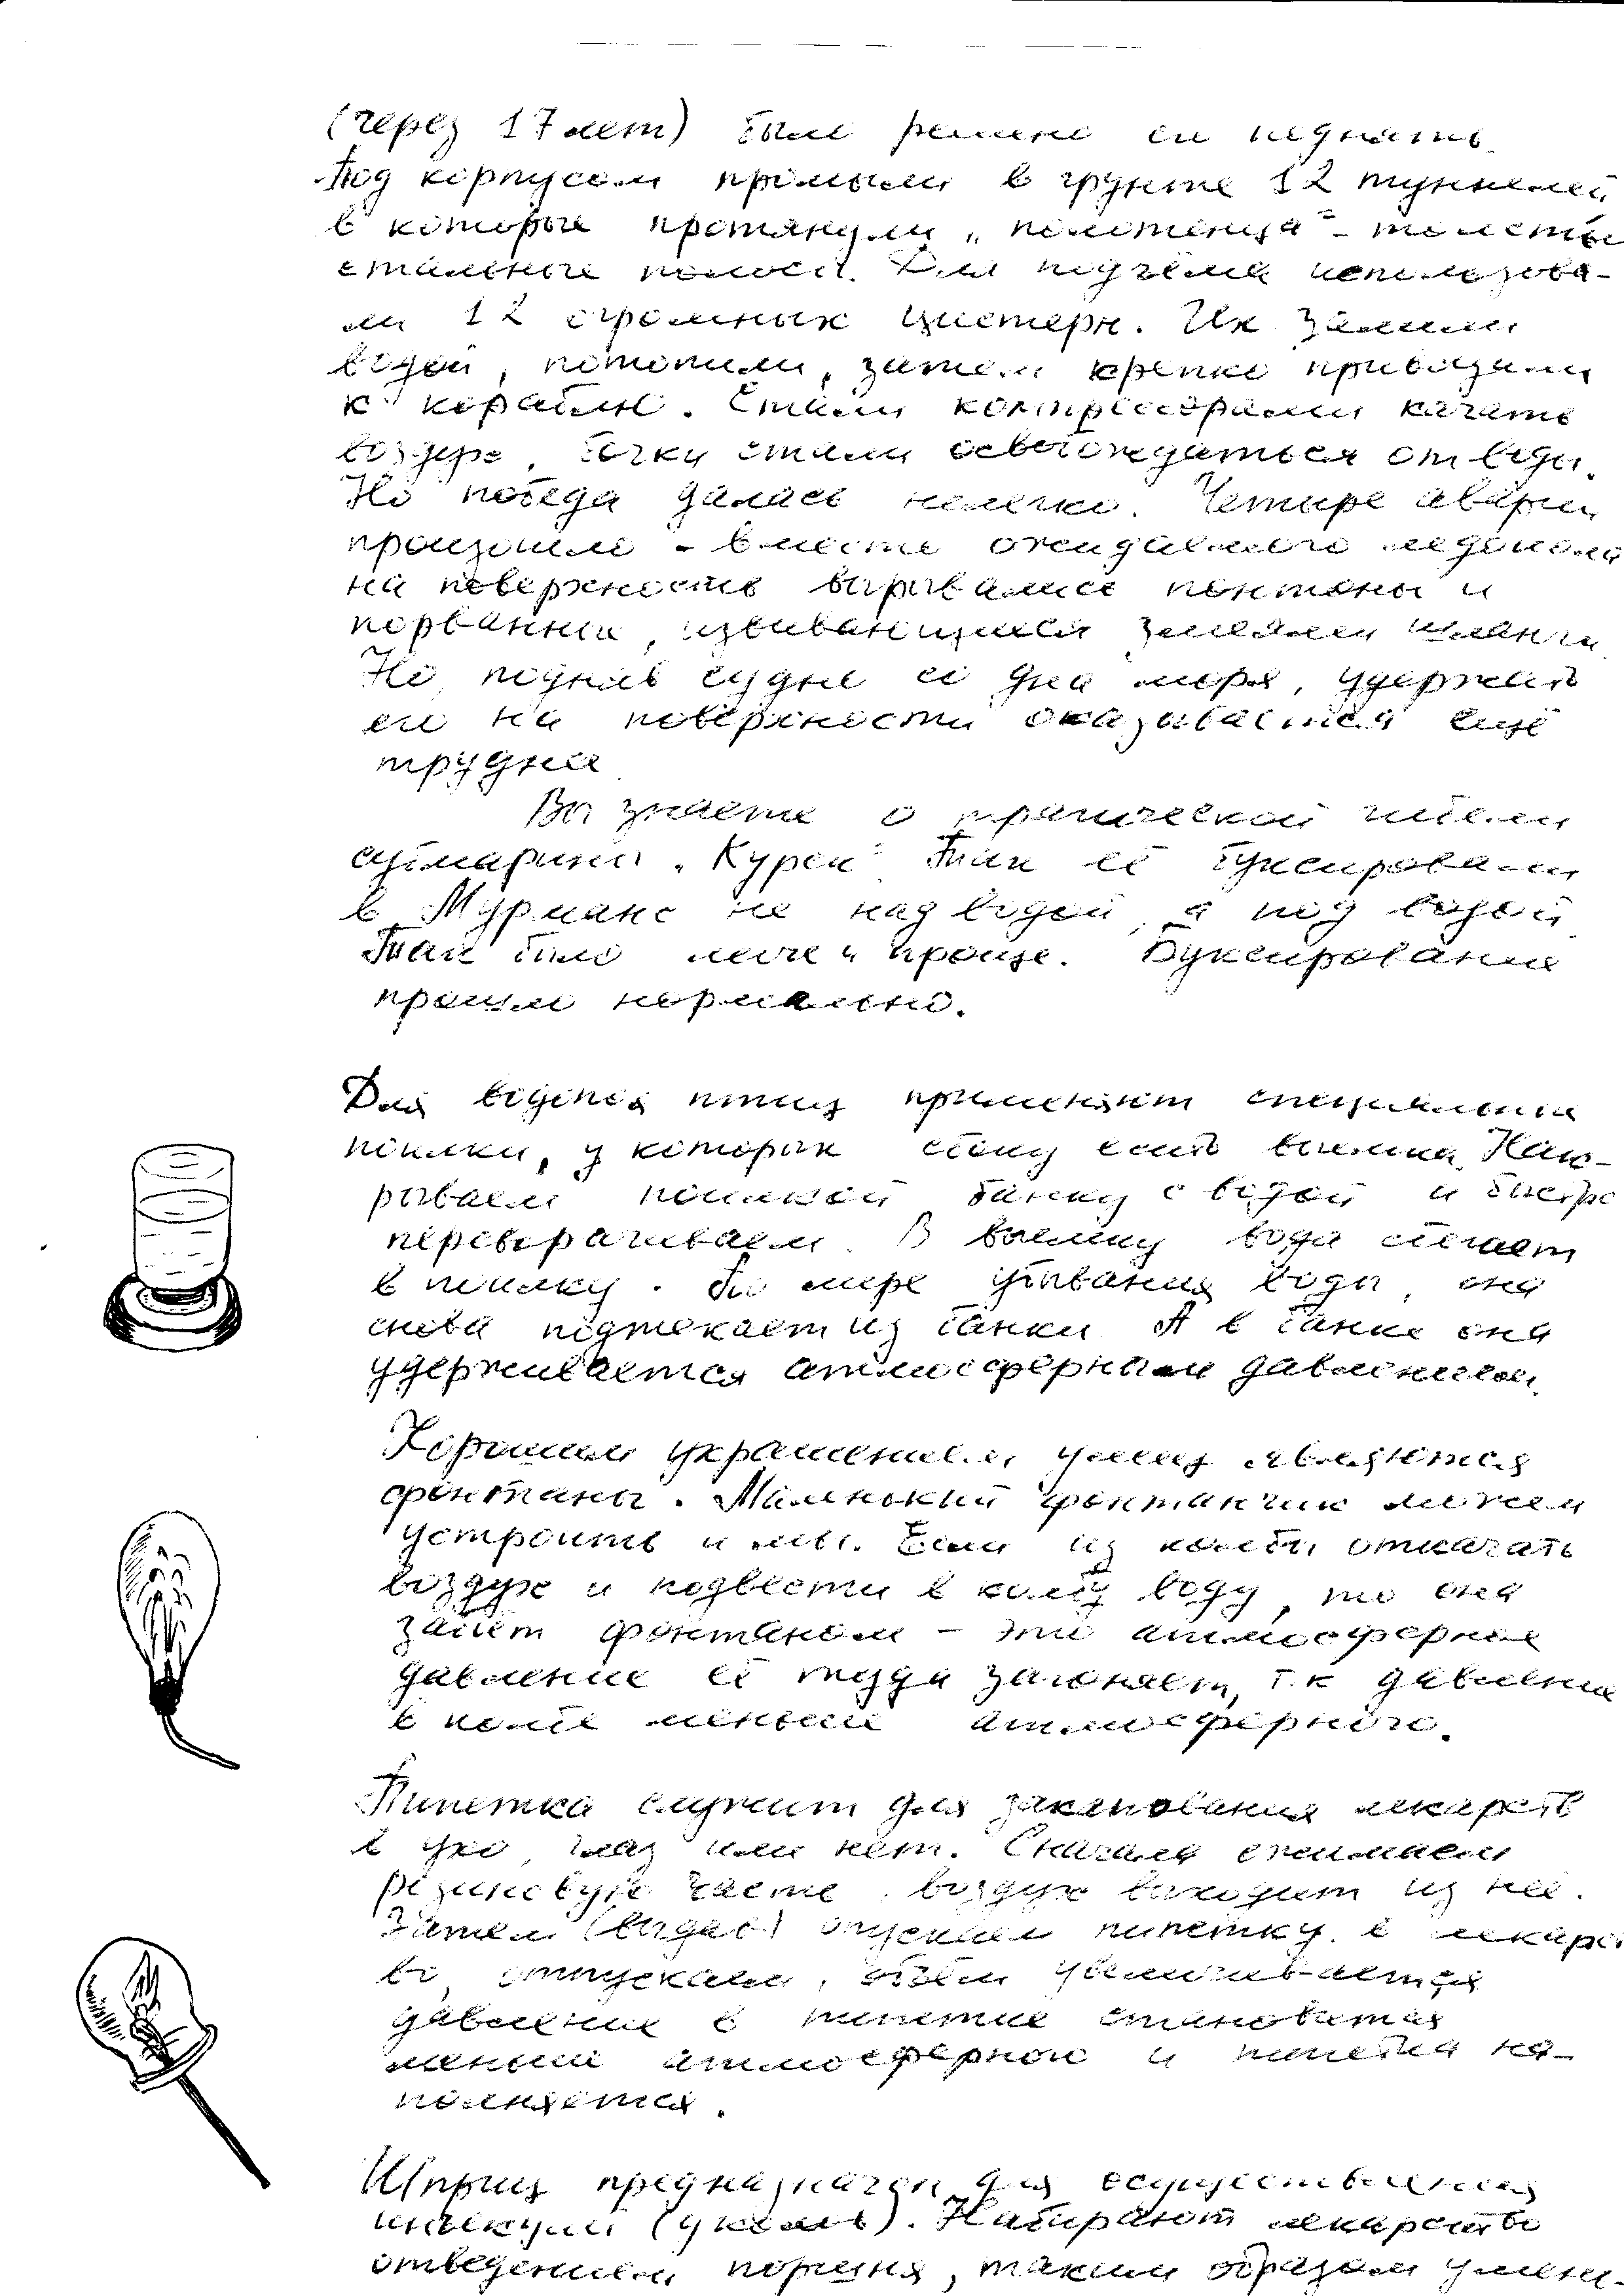 (через 17 лет) было решено его поднять.
Под корпусом промыли в грунте 12 туннелей,
в которые протянули „полотенца" - толстые
стальные полосы. Для подъёма использова-
ли 12 огромных цистерн. Их залили
водой, потопили, затем крепко привязали
к кораблю. Стали компрессорами качать
воздух, бочки стали освобождаться от воды.
Но победа далась нелегко. Четыре аварии
произошло - вместо ожидаемого ледокола
на поверхность вырывались понтоны и
порванные, извивающиеся змеями шланги.
Но, подняв судно со дна моря, удержать
его на поверхности оказывается ещё
труднее
Вы знаете о трагической гибели
субмарины „Курск" Так её буксировали
в Мурманс не над водой, а под водой
Так было легче и проще. Буксирование
прошло нормально.
Для водопоя птиц применяют специальные
поилки, у которых сбоку есть выемка. Нак-
рываем поилкой банку с водой и быстро
переворачиваем. В выемку вода стекает
в поилку. По мере убывания воды, она
снова подтекает из банки А в банке она
удерживается атмосферным давлением.
Хорошим украшением улиц являются
фонтаны. Маленький фонтанчик можем
устроить и мы. Если из колбы откачать
воздух и подвести в колбу воду, то она
забьёт фонтаном - это атмосферное
давление её туда загоняет, т.к давление
в колбе меньше атмосферного.
Пипетка служит для закапования лекарств
в ухо, глаз или нет. Сначала сжимаем
резиновую часть, воздух выходит из неё.
Затем (выдав) опускаем пипетку в лекарст
во, отпускаем, объём увеличивается
давление в пипетке становится
меньше атмосферного и пипетка на-
полняется.
Шприц предназначен для осуществления
инъекций (уколов). Набирают лекарство
отведением поршня, таким образом умень-